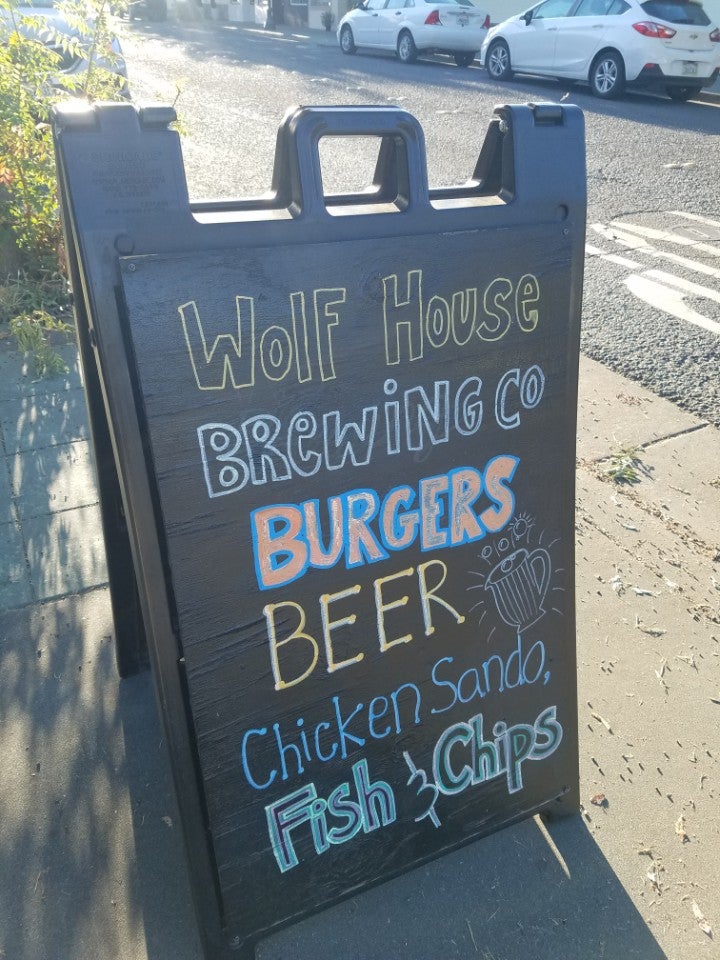 Wolf House
BReWiNG CO
BURGERS
BEER
Chicken Sando,
Fish & Chips